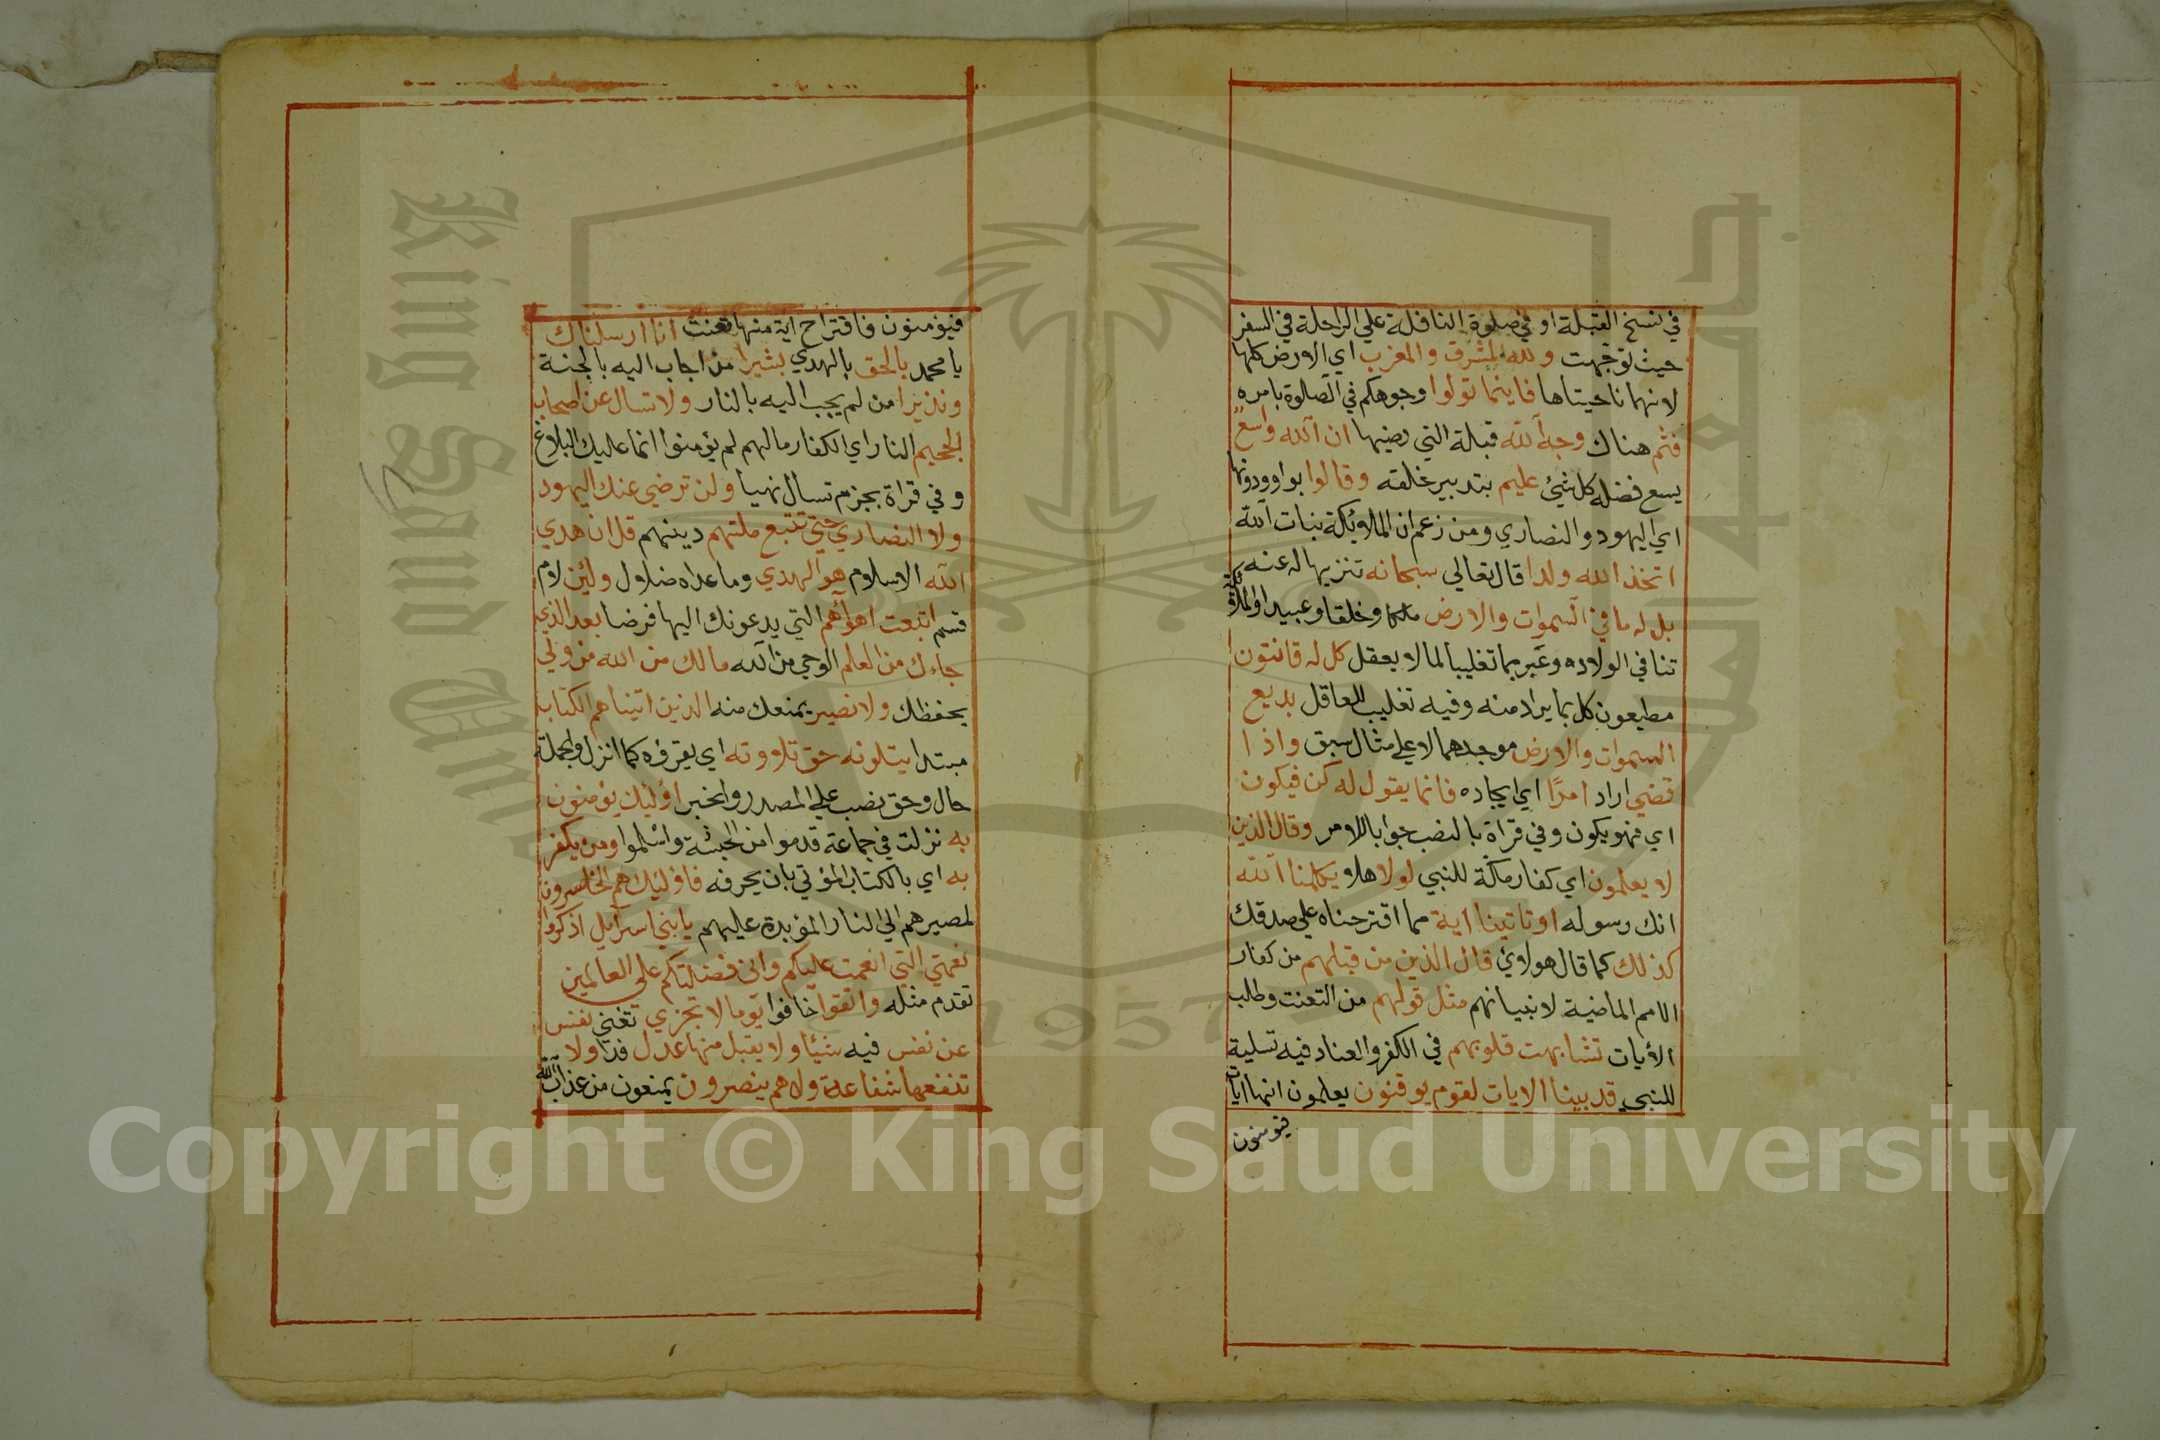 في نسخ القبلة او في صلوة النافلة علي الراحلة في السفر
حيث توجهت ولله المشرق والمغرب اي الارض كلها
لانهما ناحيتاها فاينما تولوا وجوهكم في الصلوة بامره
فثم هناك وجه الله قبلة التي رضيها ان الله واسع
يسع فضله كل شئ عليم بتدبير خلقه وقالوا بواو ودونها
اي اليهود والنصاري ومن زعم ان الملائكة بنات الله
اتخذ الله ولدا قال تعالي سبحانه تنزيها له عنه
بل له ما في السموات والارض ملكا وخلقا وعبيدا والملكية
تنافي الولاده وعبر بما تغليبا لما لا يعقل كل له قانتون
مطيعون كل بما يراد منه وفيه تغليب العاقل بديع
السموات والارض موجدهما لا علي مثال سبق واذا
قضي اراد امرًا اي ايجاده فانما يقول له كن فيكون
اي فهو يكون وفي قراة بالنصب جوابا للامر وقال الذين
لا يعلمون اي كفار مكة للنبي لولا هلا يكلمنا الله
انك رسوله او تاتينا اية مما اقترحناه علي صدقك
كذلك كما قال هولاوئ قال الذين من قبلهم من كفار
الامم الماضية لانبيانهم مثل قولهم من التعنت وطلب
الأيات تشابهت قلوبهم في الكفر والعناد فيه تسلية
للنبي قد بينا الايات لقوم يوقنون يعلمون انها ايات
فيومنون
فيؤمنون فاقتراح اية منها تعنت انا ارسلناك
يا محمد بالحق بالهدي بشيرا من اجاب اليه بالجنة
ونذيرا من لم يجب اليه بالنار ولا تسال عن اصحاب
الجحيم النار اي الكفار مالهم لم يؤمنوا انما عليك البلاغ
وفي قراة بجزم تسال نهيا ولن ترضي عنك اليهود
ولا النصاري حتي تتبع ملتهم دينهم قل ان هدي
الله الاسلام هو الهدي وما عداه ضلال ولئن لام
قسم اتبعت اهوآهم التي يدعونك اليها فرضا بعد الذي
جاءك من العلم الوحي من الله مالك من الله من ولي
يحفظك ولا نصير يمنعك منه الذين اتيناهم الكتاب
مبتدا يتلونه حق تلاوته اي يقرؤه كما انزل والجملة
حال وحق نصب علي المصدر والخبر اؤليك يؤمنون
به نزلت في جماعة قدموا من الحبشة واسلموا ومن يكفر
به اي بالكتاب المؤتي بان يحرفه فاؤليك هم الخاسرون
لمصيرهم الي النار المؤبدة عليهم يا بني اسرآيل اذكروا
نعمتي التي انعمت عليكم واني فضلتكم علي العالمين
تقدم مثله واتقوا خافوا يوما لا تجزي تغني نفس
عن نفس فيه شيئا ولا يقبل منها عدل فدا ولا
تنفعها شفاعة ولا هم ينصرون يمنعون من عذاب الله